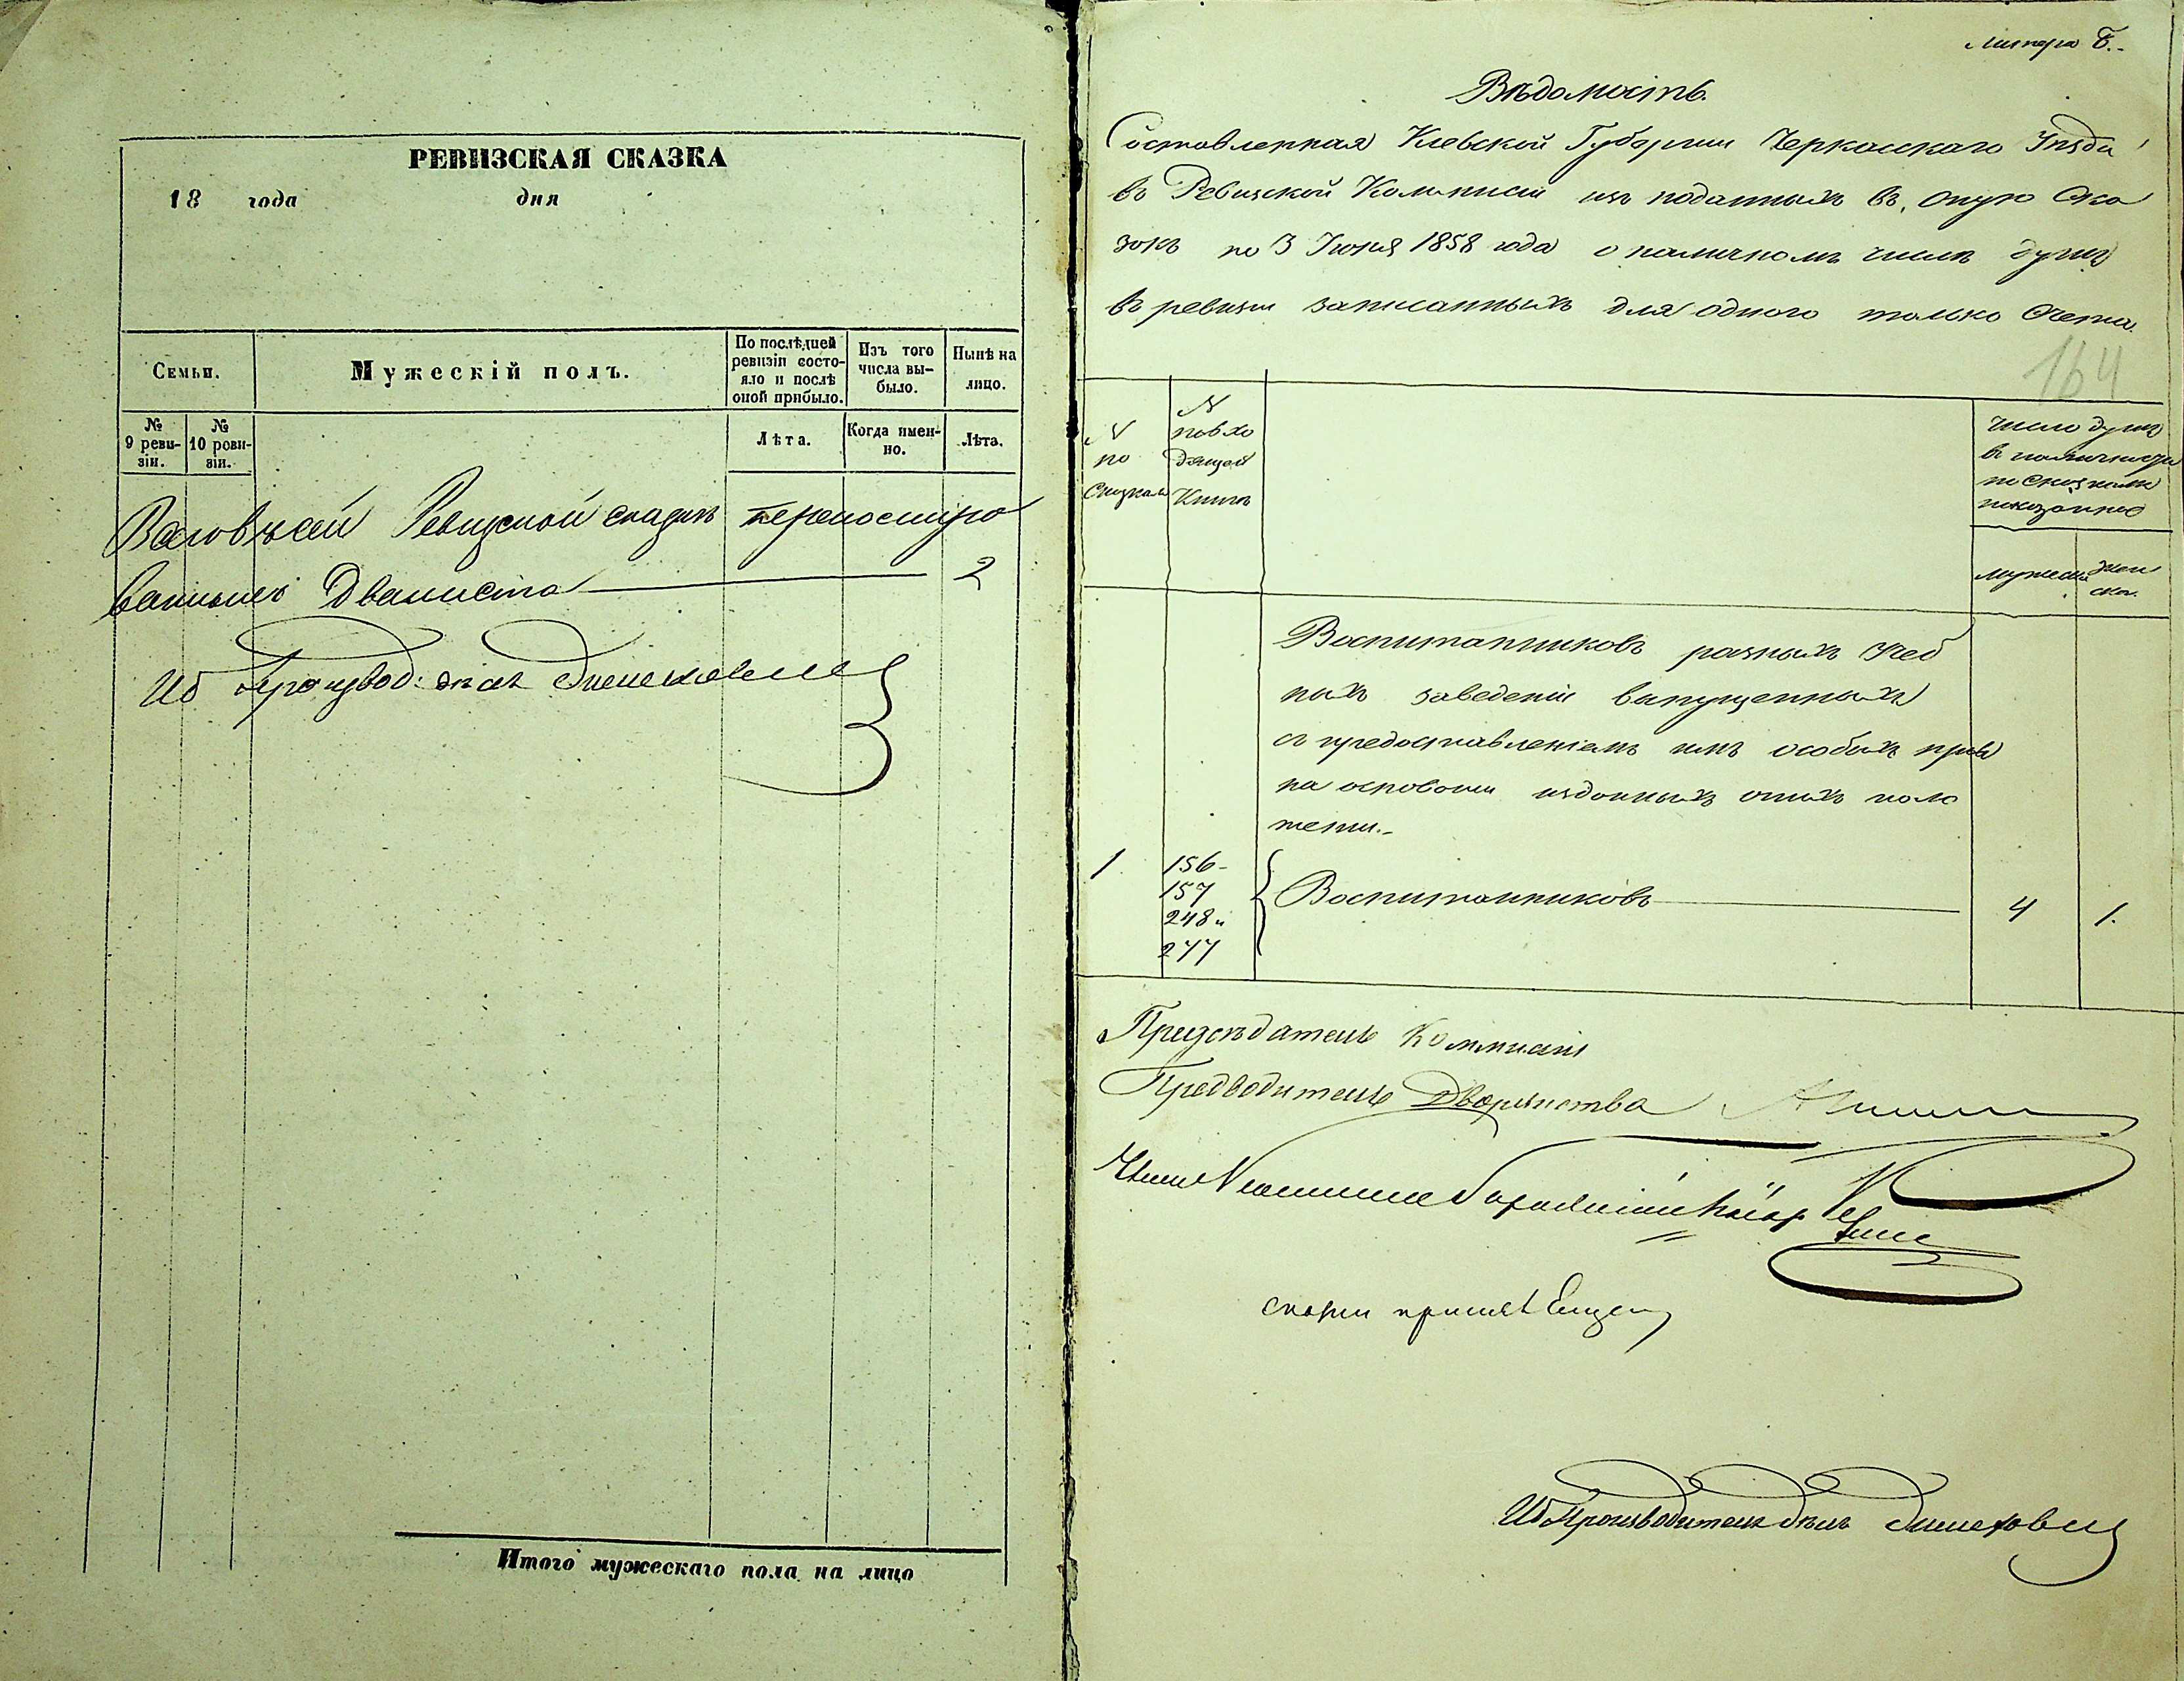 РЕВИЗСКАЯ СКАЗКА
18 года дня
Семьи.
Мужескій полъ.
По послѣдней ревизіи состо-
яло и послѣ
оной прибыло.
Изъ того
числа вы-
было.
Нынѣ на
лицо.
№
9 реви-
зіи.
№
10 реви-
зіи.
Лѣта.
Когда имен-
но.
Лѣта.
Ревизской сказкѣ перенумеро
ванныхъ Два листа 2
Иб Производ: дѣлъ
Итого мужескаго пола на лицо
Литера Б.
Вѣдомость
Составленная Кіевской Губерніи Черкасскаго Уѣзда
въ Ревизской Коммисіи изъ поданныхъ въ оную Ска
зокъ по 3 Іюня 1858 года о наличномъ числѣ душъ
въ ревизіи записанныхъ для одного только Счета.
164
№
по
Сказкамъ
№
по вхо
дящей
Книгѣ
Число душъ
въ наличности
по Сказкамъ
показанное
мужеска
жен
ска.
Воспитанниковъ разныхъ Учеб
ныхъ заведеній выпущенныхъ
съ предоставленіемъ имъ особыхъ правъ
на основаніи изданныхъ оныхъ поло
женій.
1. 156
157
248 и
277
Воспитанниковъ 4 1.
Предсѣдатель Коммисіи
Предводитель Дворянства
Иб Производитель Дѣлъ